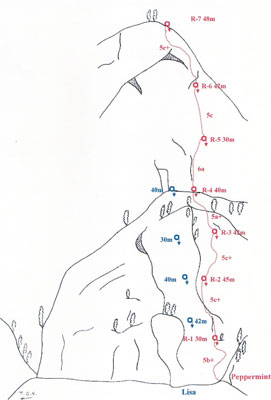 R-7 48m
5c+
R-6 42m
5c
R-5 30m
6a
40m
R-4 40m
5a+
R-3 42m
30m
5c+
40m
R-2 45m
5c+
42m
R-1 30m
5b+
Peppermint
Lisa